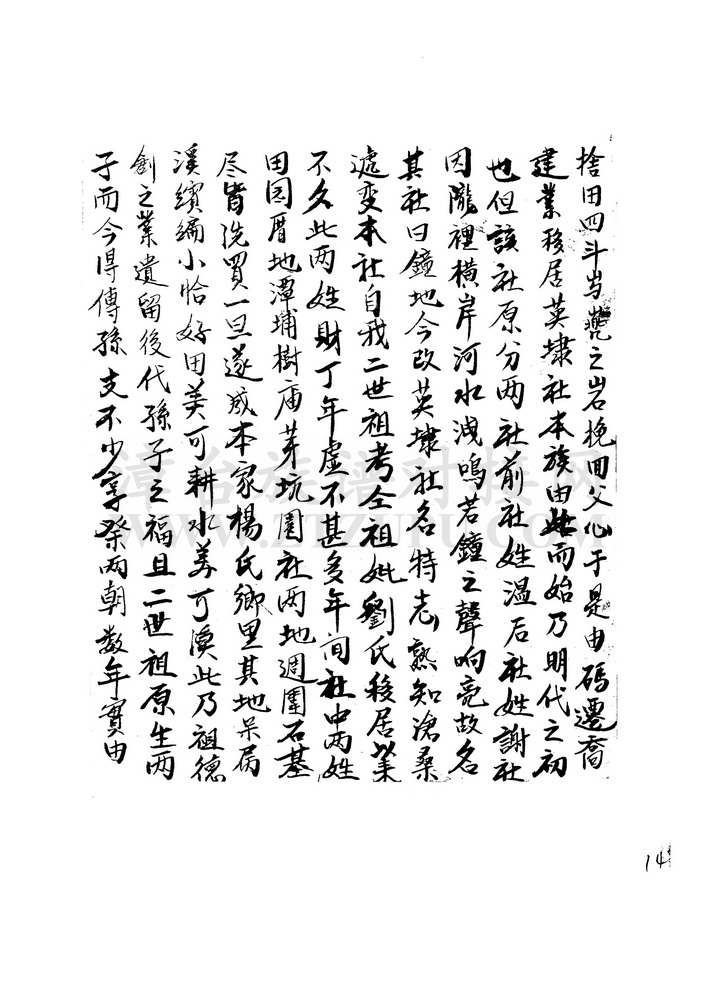 捨田四斗与甕之岩挽回父化于是由碼遷喬
建業移居英埭社本族由此而始乃明代之初
也但該社原分两社前社姓温后社姓謝社
因隴裡横岸河水洩鳴若鐘之聲响亮故名
其社曰鐘地今改英埭社名特老熟知滄桑
遽变本社自我二世祖考仝祖妣劉氏移居業
不久此两姓財丁年虚不甚多年间社中两姓
田园厝地潭埔樹庙芽坑圍社两地週圍石基
尽皆洗買一旦遂成本家楊氏鄉里其地呆扃
溪繽編小恰好田美可耕水美可漁此乃祖德
創之業遺留後代孫子之福且二世祖原生两
子而今得傳孫支不少享祭两朝数年實由
漳台族谱对接网
WWW.ZTZUPU.COM
14